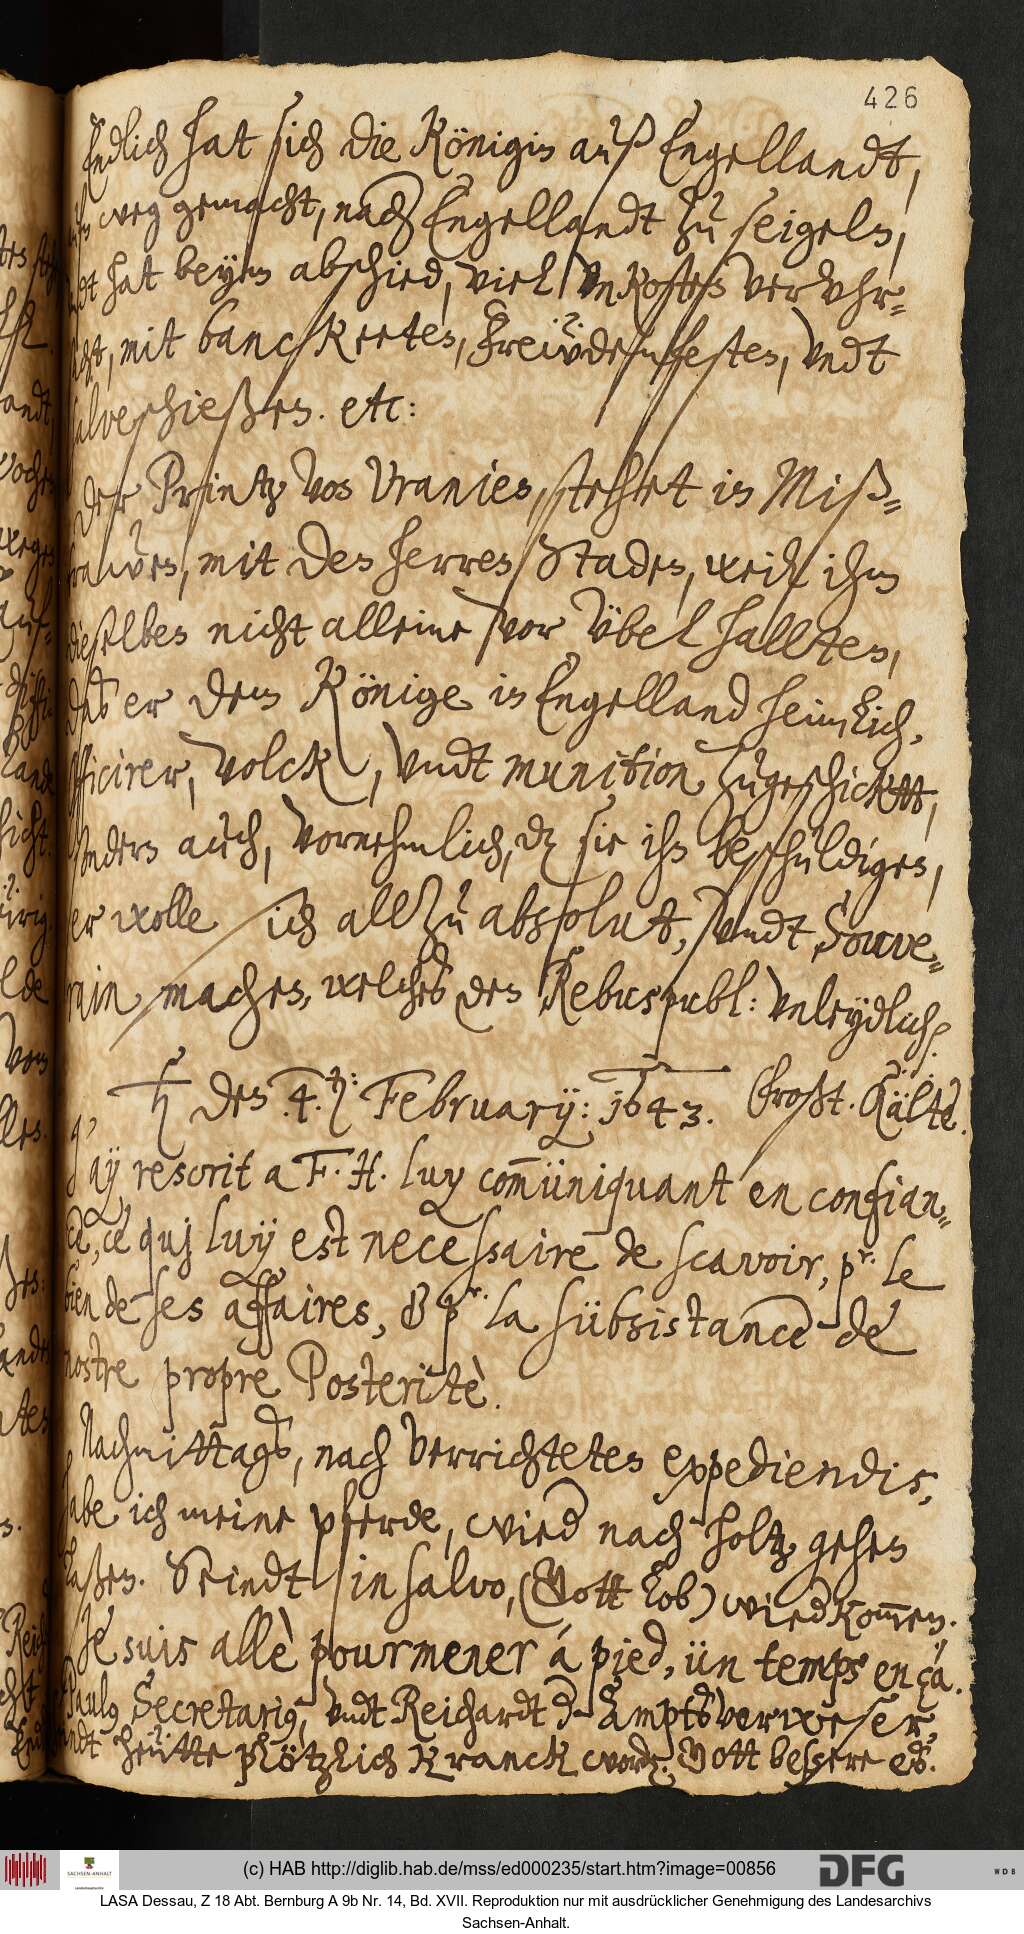 426
Endlich hat sich die Königin auß Engellandt,
aufn weg gemacht, nach Engellandt zu seigeln,
undt hat beym abschied, viel Vnkosten verVhr-
sacht, mit banckeeten, Freüdenffesten, Vndt
salveschießen. etc:
Der Printz Von Vranien, stehet in Miß-
trauen, mit den herren Staden, weil ihm
dieselben nicht alleine vor Übel hallten,
daß er dem Könige in Engelland heimlich,
officirer, Volck, Vndt munition zugeschicktt,
sondern auch, vornehmlich, dz sie ihn beschuldigen,
er wolle sich allzu absolut, vndt Souve-
rain machen, welches den Rebuspubl: Vnleydlich.
♄ den .4.ten: February: 1643. Großt. Kälte.
J'ay rescrit a F. H. luy com̄uniquant en confian-
ce, ce qui luy est necessaire de scavoir, pr. le
bien de ses affaires, & pr. la subsistance de
nostre propre Posteritè.
Nachmittags, nach verrichteten expediendis,
habe ich meine pferde, wied nach holtz gehen
laßen. Seindt in salvo, (Gott lob) wied kom̄en.
Je suis allè pourmener á pied, un temps en ça.
Paulus Secretarius, Vndt Reichardt d Amptsverweser,
sindt heütte plötzlich kranck word. Gott bessere es.
(c) HAB http://diglib.hab.de/mss/ed000235/start.htm?image=00856
SACHSEN-ANHALT
DFG
WDB
LASA Dessau, Z 18 Abt. Bernburg A 9b Nr. 14, Bd. XVII. Reproduktion nur mit ausdrücklicher Genehmigung des Landesarchivs
Sachsen-Anhalt.